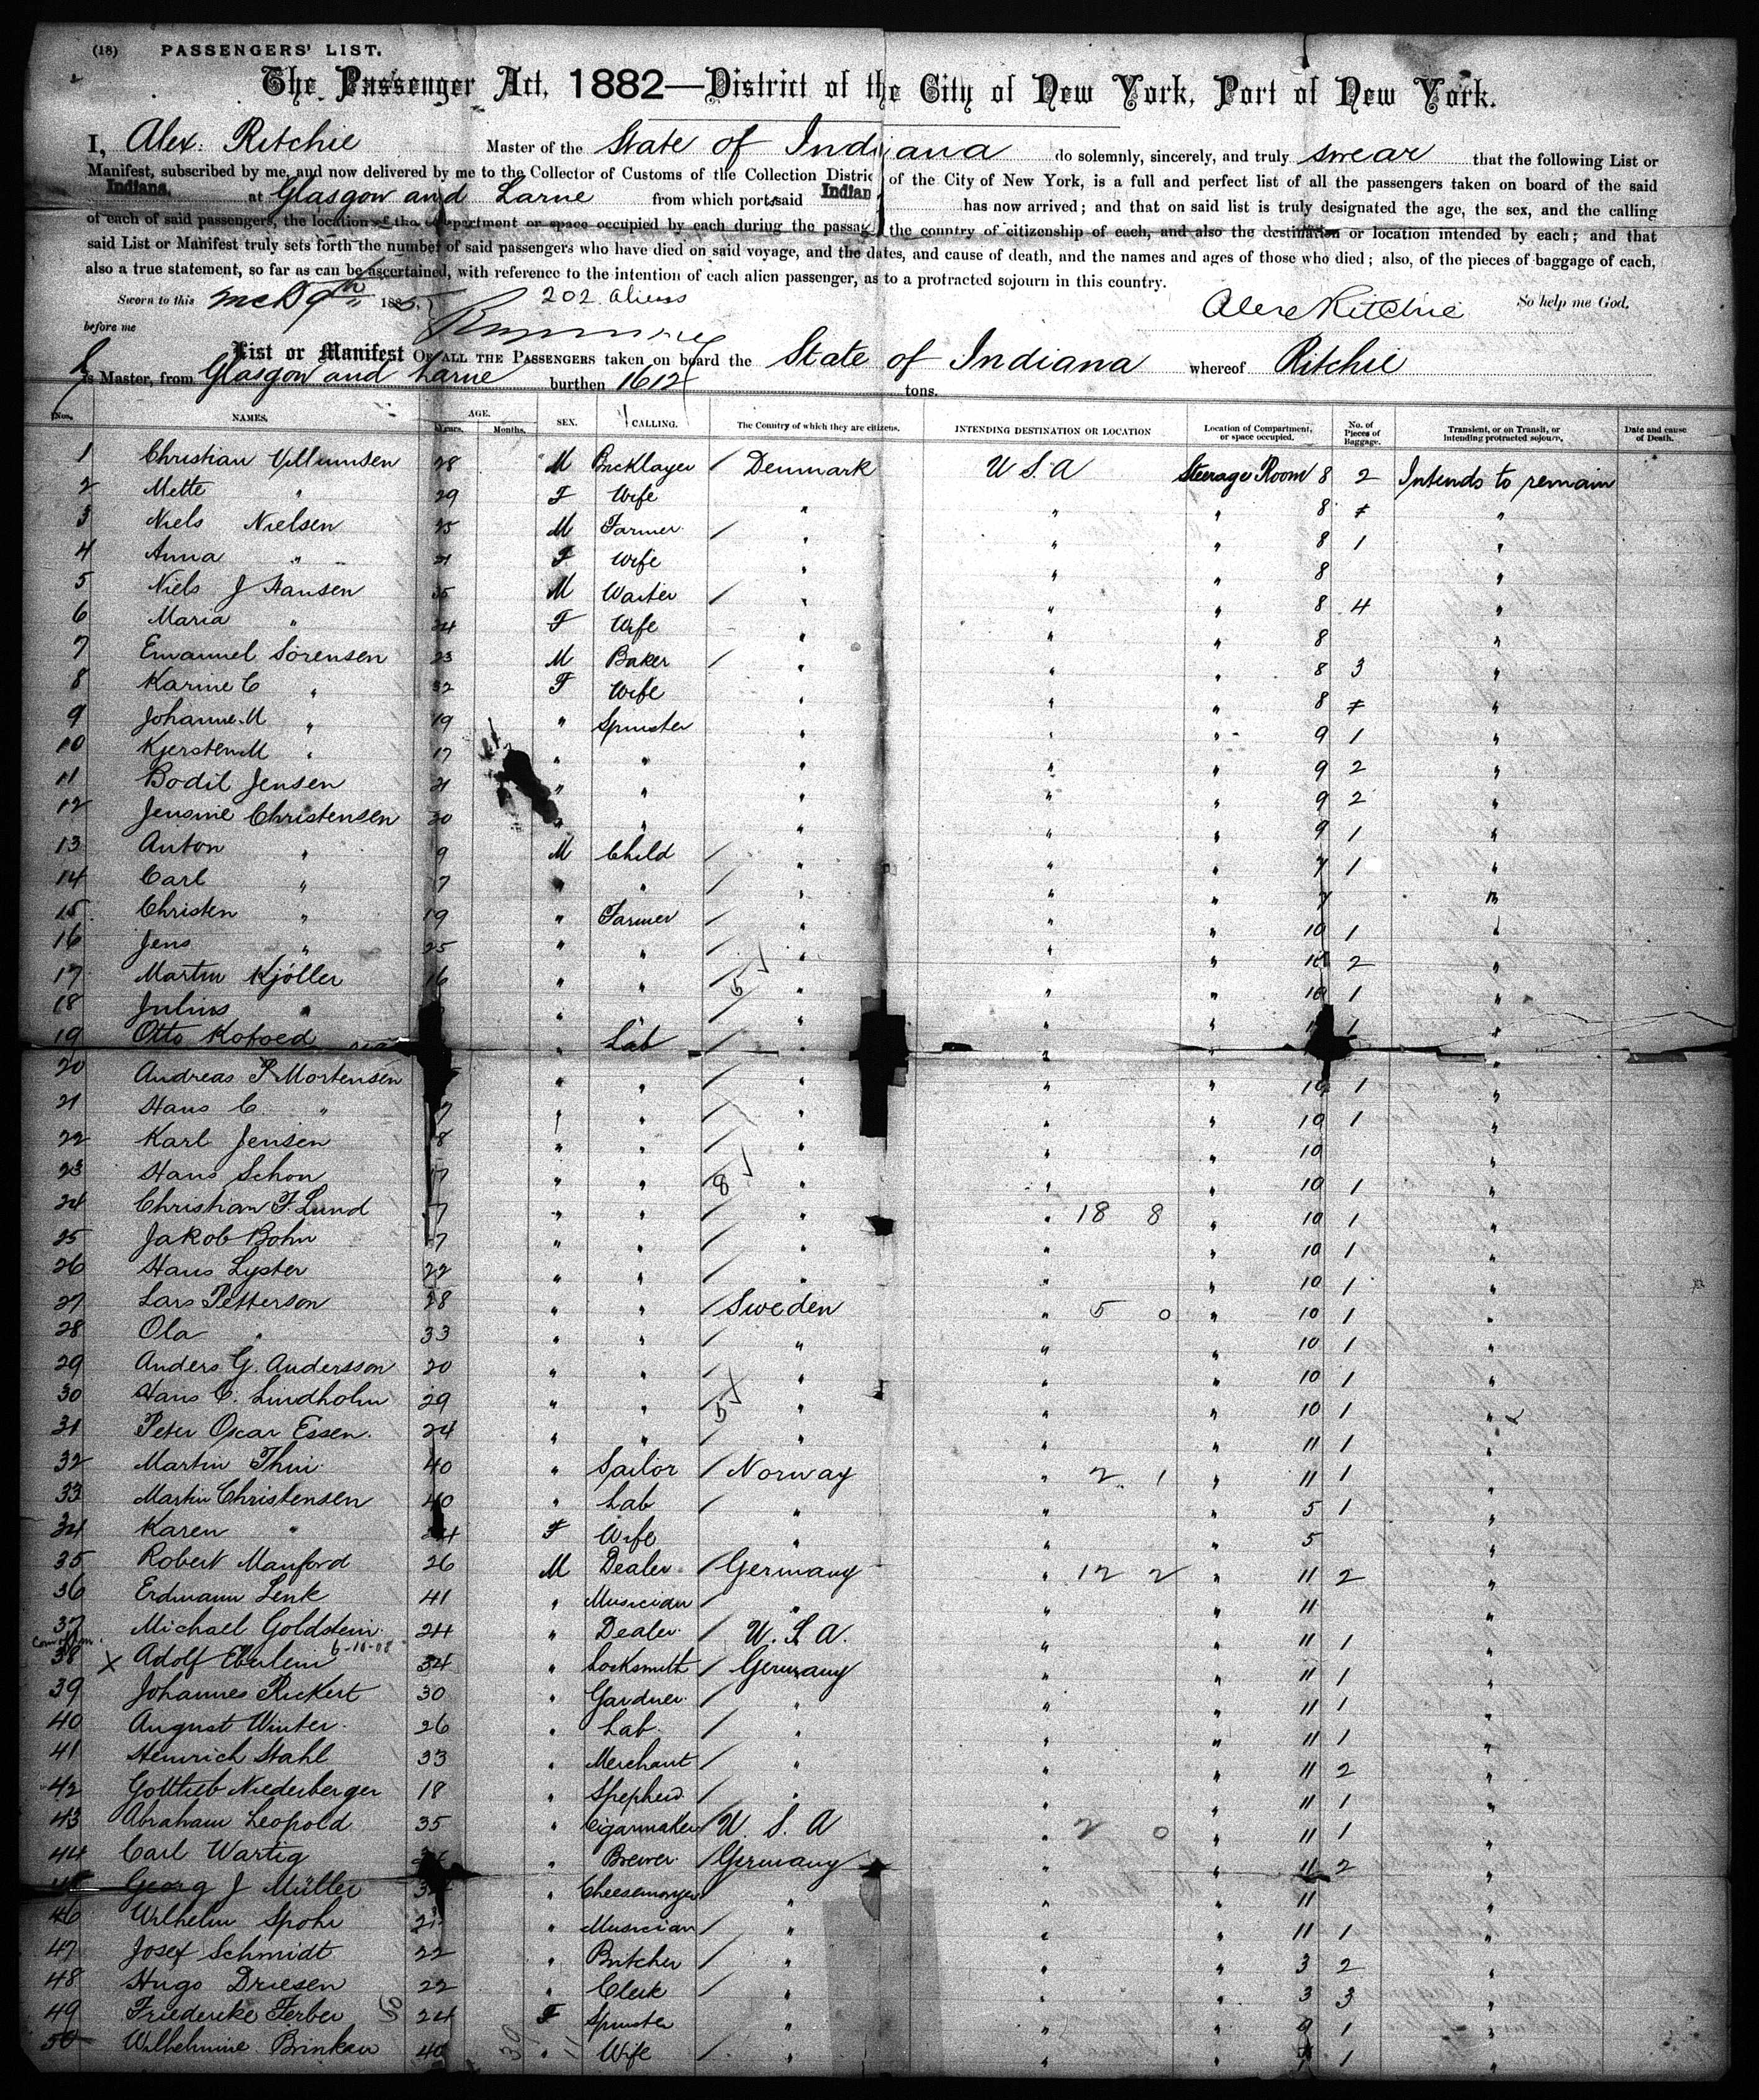 (18) PASSENGERS' LIST.
The Passenger Act, 1882—District of the City of New York, Port of New York.
I, Alex. Ritchie Master of the State of Indiana do solemnly, sincerely, and truly swear that the following List or
Manifest, subscribed by me, and now delivered by me to the Collector of Customs of the Collection District of the City of New York, is a full and perfect list of all the passengers taken on board of the said
Indiana at Glasgow and Larne from which port said Indian has now arrived; and that on said list is truly designated the age, the sex, and the calling
of each of said passengers, the location of the compartment or space occupied by each during the passage, the country of citizenship of each, and also the destination or location intended by each; and that
said List or Manifest truly sets forth the number of said passengers who have died on said voyage, and the dates, and cause of death, and the names and ages of those who died; also, of the pieces of baggage of each,
also a true statement, so far as can be ascertained, with reference to the intention of each alien passenger, as to a protracted sojourn in this country.
Sworn to this 9th 1885 202 aliens Alex Ritchie So help me God.
before me
List or Manifest OF ALL THE PASSENGERS taken on board the State of Indiana whereof Ritchie
is Master, from Glasgow and Larne burthen 1612 tons.
Nos. NAMES. AGE. Years. Months. SEX. CALLING. The Country of which they are citizens. INTENDING DESTINATION OR LOCATION Location of Compartment, or space occupied. No. of Pieces of Baggage. Transient, or on Transit, or Intending protracted sojourn. Date and cause of Death.
1 Christian Villumsen 28 M Bricklayer / Denmark U S. A Steerage Room 8 2 Intends to remain
2 Mette " 29 F Wife " " " 8 "
3 Niels Nielsen 25 M Farmer / " " " 8 1 "
4 Anna " 21 F Wife " " " 8 "
5 Niels J Hansen 35 M Waiter / " " " 8 4 "
6 Maria " 34 F Wife " " " 8 "
7 Emanuel Sörensen 23 M Baker / " " " 8 3 "
8 Karine C " 32 F Wife " " " 8 "
9 Johanne M " 19 " Spinster " " " 9 1 "
10 Kjersten M " 17 " " " " " 9 2 "
11 Bodil Jensen 21 " " " " " 9 2 "
12 Jensine Christensen 30 " " " " " 9 1 "
13 Anton " 9 M Child / " " " 7 1 "
14 Carl " 7 " " / " " " 7 "
15 Christen " 19 " Farmer / " " " 10 1 "
16 Jens " 25 " " / " " " 10 2 "
17 Martin Kjöller 16 " " / 5 " " " 10 1 "
18 Julius " " " / " " " 1 "
19 Otto Kofoed " Lab / " " " "
20 Andreas P Mortensen " " / " " " 10 1 "
21 Hans C " 7 " " / " " " 10 1 "
22 Karl Jensen 8 " " / " " " 10 "
23 Hans Schon 17 " " / 8 " " " 10 1 "
24 Christian F. Lund 7 " " / " " 18 8 " 10 1 "
25 Jakob Bohn 7 " " / " " " 10 1 "
26 Hans Lyster 22 " " / " " " 10 1 "
27 Lars Petterson 28 " " / Sweden " 5 0 " 10 1 "
28 Ola " 33 " " / " " " 10 1 "
29 Anders G. Andersson 20 " " / " " " 10 1 "
30 Hans C. Lindholm 29 " " / 5 " " " 10 1 "
31 Peter Oscar Essen. 24 " " / " " " 11 1 "
32 Martin Thui 40 " Sailor / Norway " 2 1 " 11 1 "
33 Martin Christensen 40 " Lab / " " " 5 1 "
34 Karen " F Wife " " " 5 "
35 Robert Manford 26 M Dealer / Germany " 12 2 " 11 2 "
36 Erdmann Lenk 41 " Musician / " " " 11 "
37 Michael Goldstein 24 " Dealer / U. S. A. " " 11 1 "
38 X Adolf Eberlein 6-10-08 34 " Locksmith / Germany " " 11 1 "
39 Johannes Rickert 30 " Gardner / " " " 11 1 "
40 August Winter 26 " Lab / " " " 11 1 "
41 Heinrich Stahl 33 " Merchant / " " " 11 2 "
42 Gottlieb Niederberger 18 " Shepherd / " " " 11 1 "
43 Abraham Leopold 35 " Cigarmaker / U. S. A " 2 0 " 11 1 "
44 Carl Wartig " Brewer / Germany " " 11 2 "
Georg J Müller " Cheesemonger / " " " 11 "
46 Wilhelm Spohr " Musician / " " " 11 1 "
47 Josef Schmidt 22 " Butcher / " " " 3 2 "
48 Hugo Driesen 22 " Clerk / " " " 3 3 "
49 Friedericke Ferber 24 F Spinster " " " 9 1 "
50 Wilhelmine Brinkau 40 " Wife / " " " 1 "